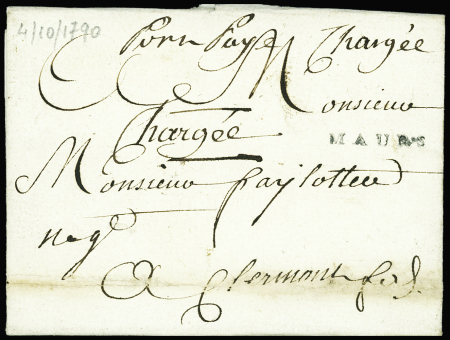 4/10/1790
Port Payé Chargée
Monsieur
Chargée
MAURS
Monsieur
neg^t
A Clermont fd.